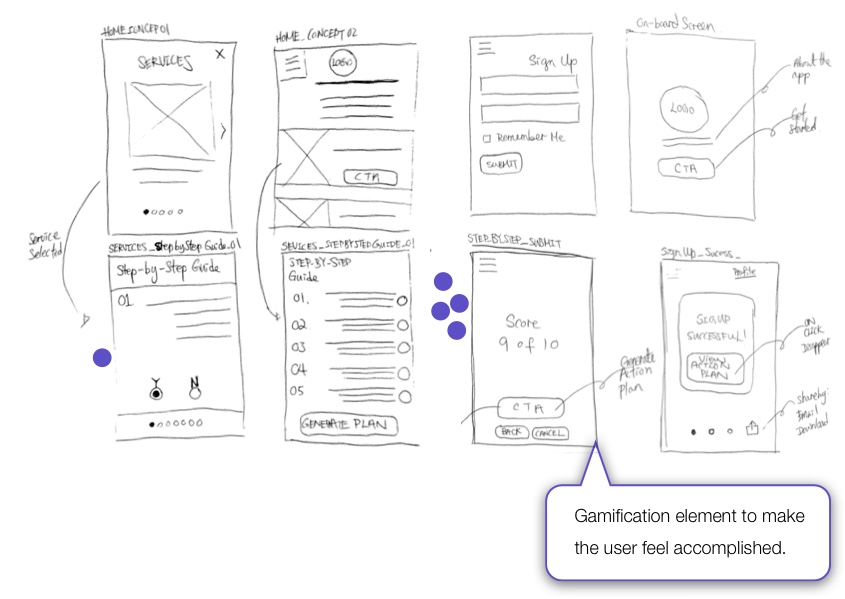 HOME_CONCEPT 01
SERVICES
X
Service
Selected
HOME_CONCEPT 02
LOGO
CTA
Sign Up
Remember Me
SUBMIT
On-board Screen
LOGO
CTA
About the
app
Get
started
SERVICES_StepbyStep Guide_01
Step-by-Step Guide
01
Y N
SEVICES_STEPBYSTEPGUIDE_01
STEP-BY-STEP
Guide
01.
02
03
04
05
GENERATE PLAN
STEPBYSTEP_SUBMIT
Score
9 of 10
CTA
BACK CANCEL
Generate
Action
Plan
Sign Up_Sucess_
Profile
SIGNUP
SUCCESSFUL!
VIEW
ACTION
PLAN
ON
Click
Share by:
Email
Download
Gamification element to make
the user feel accomplished.